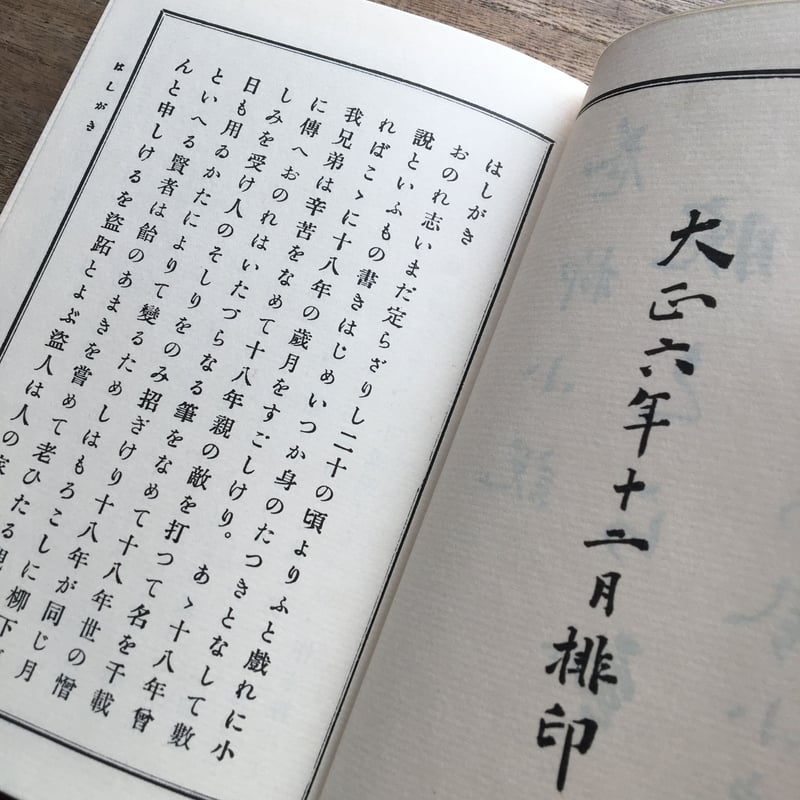 大正六年十二月排印
はしがき
おのれ志いまだ定らざりし二十の頃よりふと戲れに小
說といふもの書きはじめいつか身のたつきとなして數
ればこゝに十八年の歲月をすごしけり。あゝ十八年曾
我兄弟は辛苦をなめて十八年親の敵を打つて名を千載
に傳へおのれはいたづらなる筆をなめて十八年世の憎
しみを受け人のそしりをのみ招ぎけり十八年が同じ月
日も用ゐかたによりて變るためしはもろこしに柳下
といへる賢者は飴のあまきを嘗めて老ひたる親
んと申しけるを盜跖とよぶ盜人は人の家
はしがき